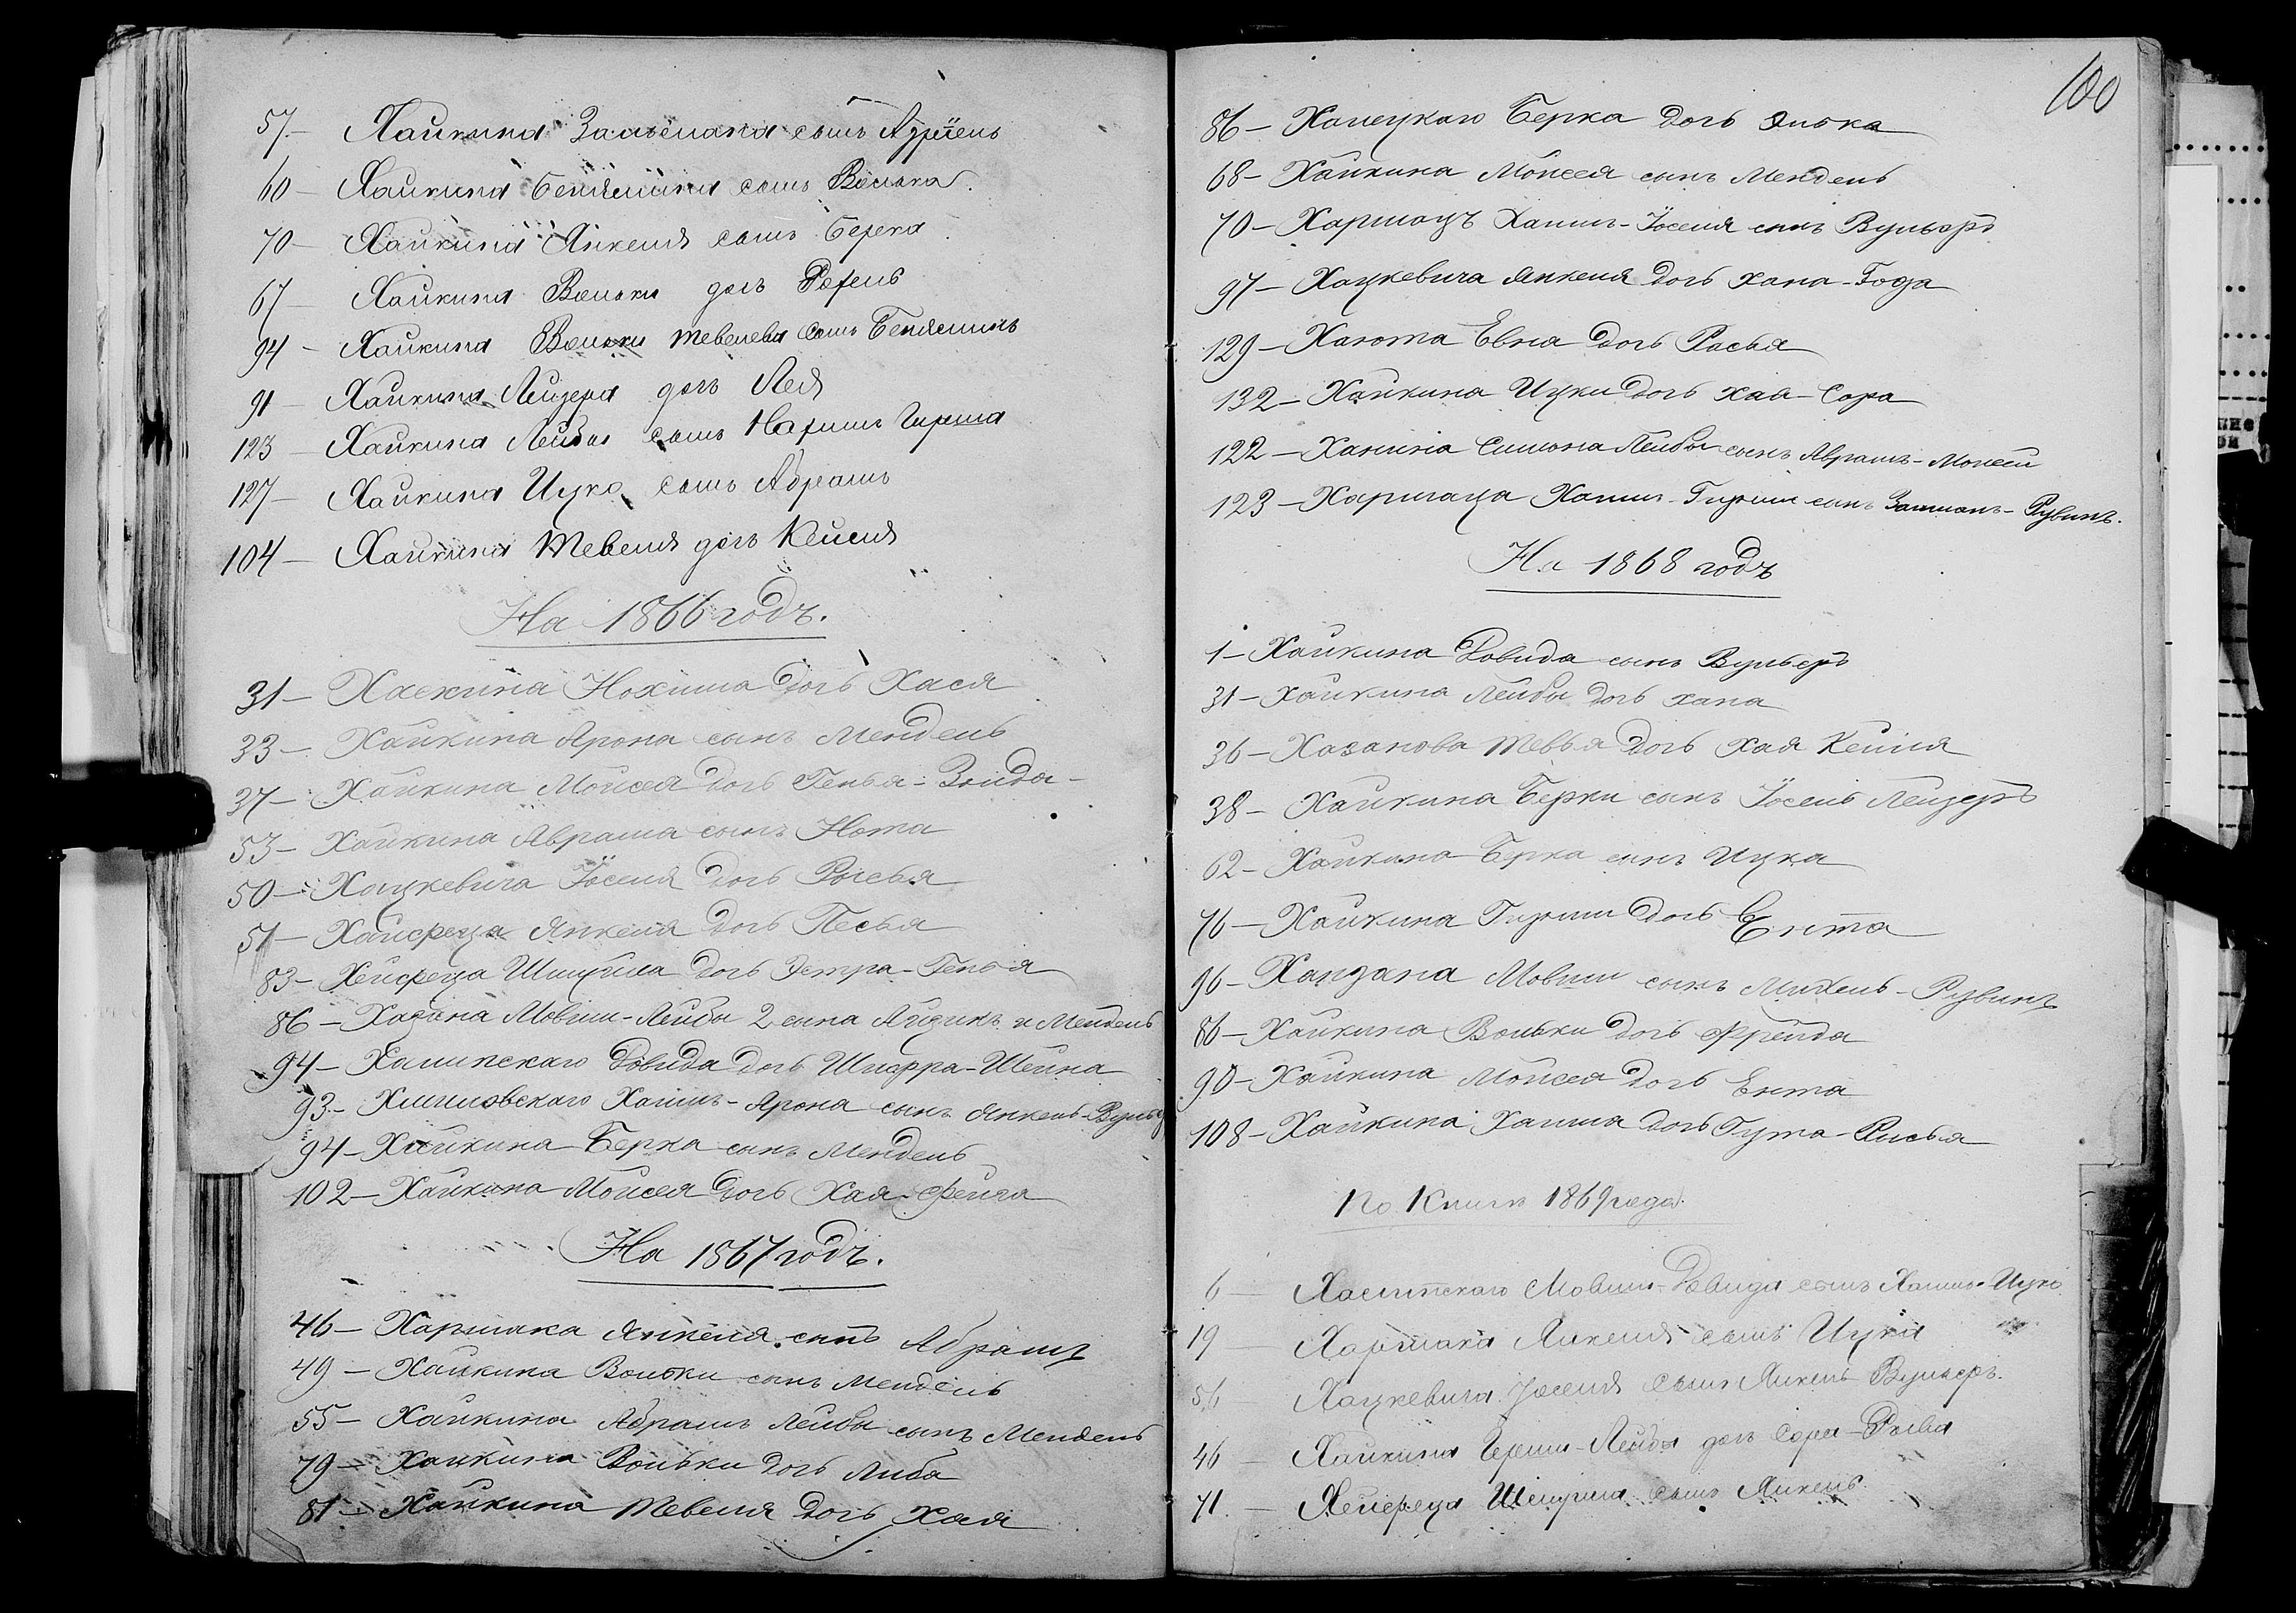 57.— Хайкина Залмана сынъ Азріель
60— Хайкина Беніямина сынъ Волька.
70— Хайкина Янкеля сынъ Берка
67— Хайкина Вольки дочь Рахель
94— Хайкина Вольки Тевелева сынъ Беніяминъ
91— Хайкина Лейзера дочь Лея
123— Хайкина Лейбы сынъ Гирша
127— Хайкина Ицко сынъ Абрамъ
104— Хайкина Тевеля дочь Кейля
На 1866 годъ.
31— Хаекина Нохима дочь Хася
33— Хайкина Арона сынъ Мендель
37— Хайкина Мойсея дочь Генья-Зелда-
53— Хайкина Абрама сынъ Нота
50— Хацкевича Іоселя дочь Рысья
51— Хайфеца Янкеля дочь Песья
83— Хейфеца дочь Эстра-Генья
86— Хазана Мовши-Лейбы 2 сына Айзикъ и Мендель
94— Довида дочь Шифра-Шейна
93.— Хаимъ-Арона сынъ Янкель-
94— Хайкина Берка сынъ Мендель
102— Хайкина Мойсея дочь Хая-Фейга
На 1867 годъ.
46— Хармака Янкеля сынъ Абрамъ
49— Хайкина Вольки сынъ Мендель
55— Хайкина Абрамъ Лейбы сынъ Мендель
79— Хайкина Вольки дочь Либа
81— Хайкина Тевеля дочь Хая
100
86— Берка дочь Элька
68— Хайкина Мойсея сынъ Мендель
70— Хармацъ Хаимъ-Іоселя сынъ Вульфъ
97— Хацкевича Янкеля дочь Хана-Года
129— Хаюта Евна дочь Расья
132— Хайкина Ицки дочь Хая-Сора
122— Ханина Симона Лейбы сынъ Абрамъ-Мойсей
123— Хармаца Хаимъ-Гирши сынъ Залманъ-Рувинъ.
На 1868 годъ
1— Хайкина Довида сынъ Вульфъ
31— Хайкина Лейбы дочь Хана
36— Хазанова Тевья дочь Хая Кейля
38— Хайкина Берки сынъ Іосель Лейзеръ
62— Хайкина Берка сынъ Ицка
76— Хайкина Гирши дочь Ента
96— Мовши сынъ Михель-Рувинъ
86— Хайкина Вольки дочь Фрейда
90— Хайкина Мойсея дочь Ента
108— Хайкина Хаима дочь Гута-Рисья
По Книгѣ 1869 года.
6— Мовши-Довида сынъ Хаимъ-Ицко
19— Хармака Янкеля сынъ Ицка
56 Хацкевича Іоселя сынъ Янкель-Вульфъ.
46— Хайкина Герша-Лейбы дочь Сора-
71.— Хейфеца сынъ Янкель